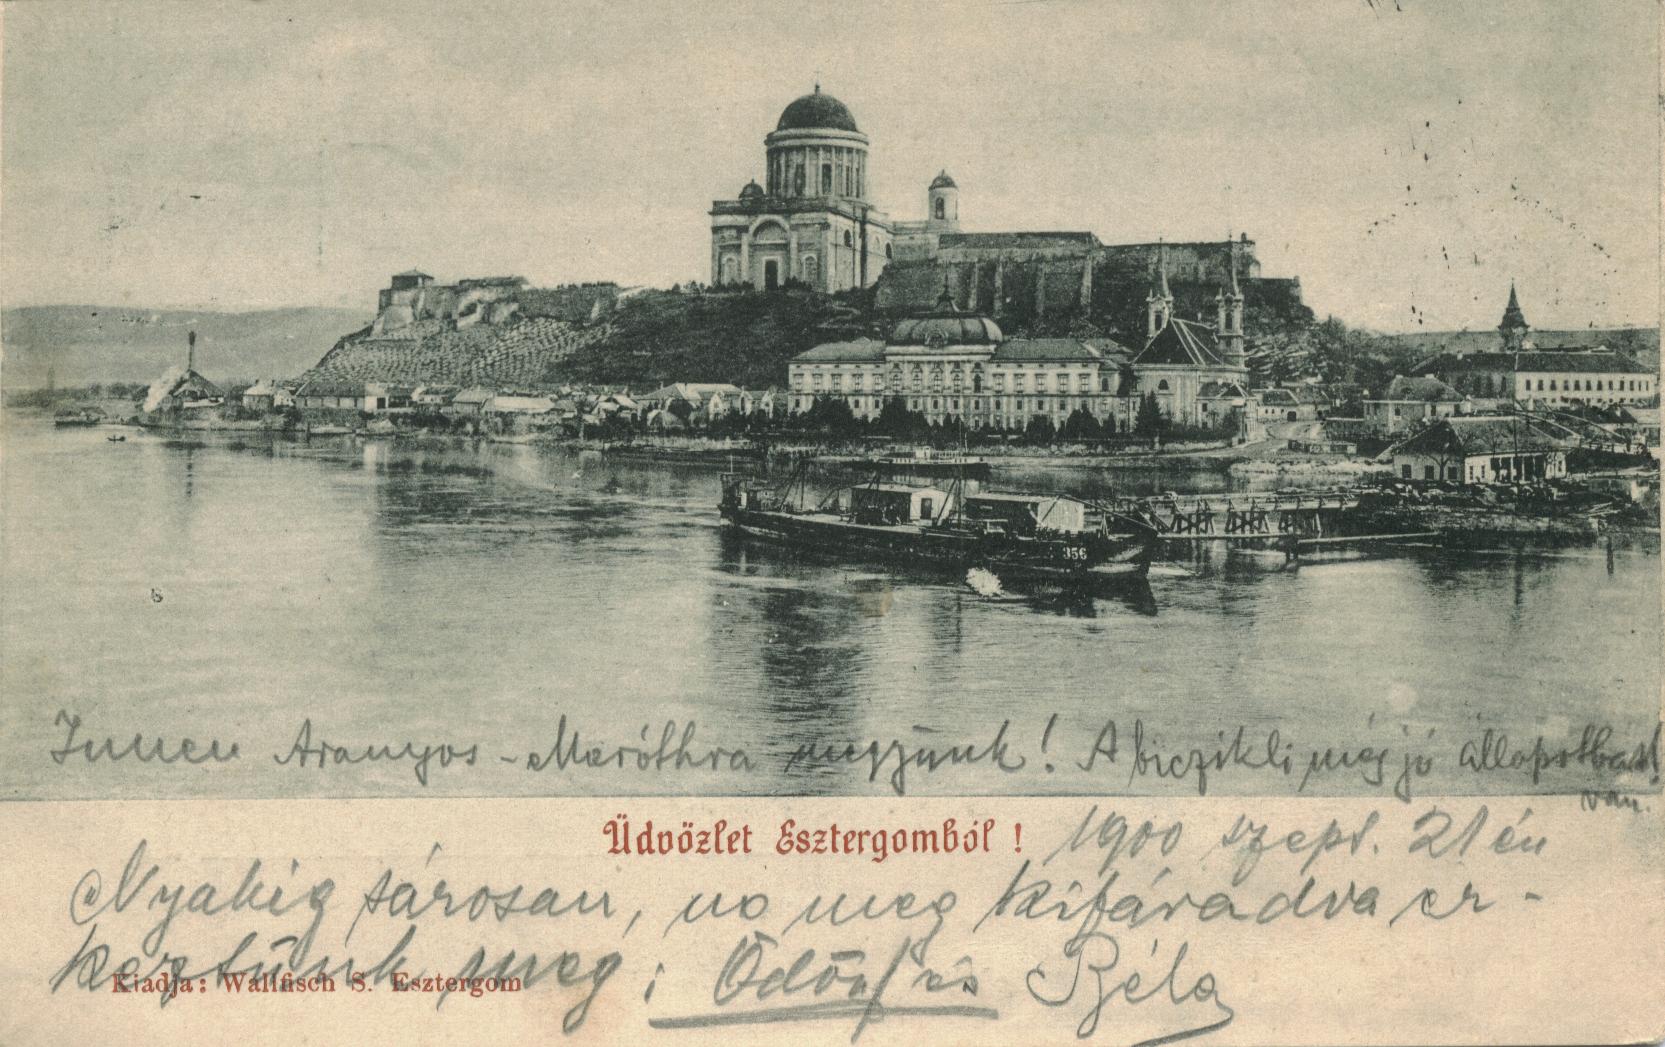 356
Innen Aranyos-Maróthra megyünk! A biczikli még jó állapotban
van.
Üdvözlet Esztergomból!
1900 szept. 21 én
Nyakig sárosan, no meg kifáradva ér-
keztünk meg; Ödön és Béla
Kiadja: Wallfisch S. Esztergom